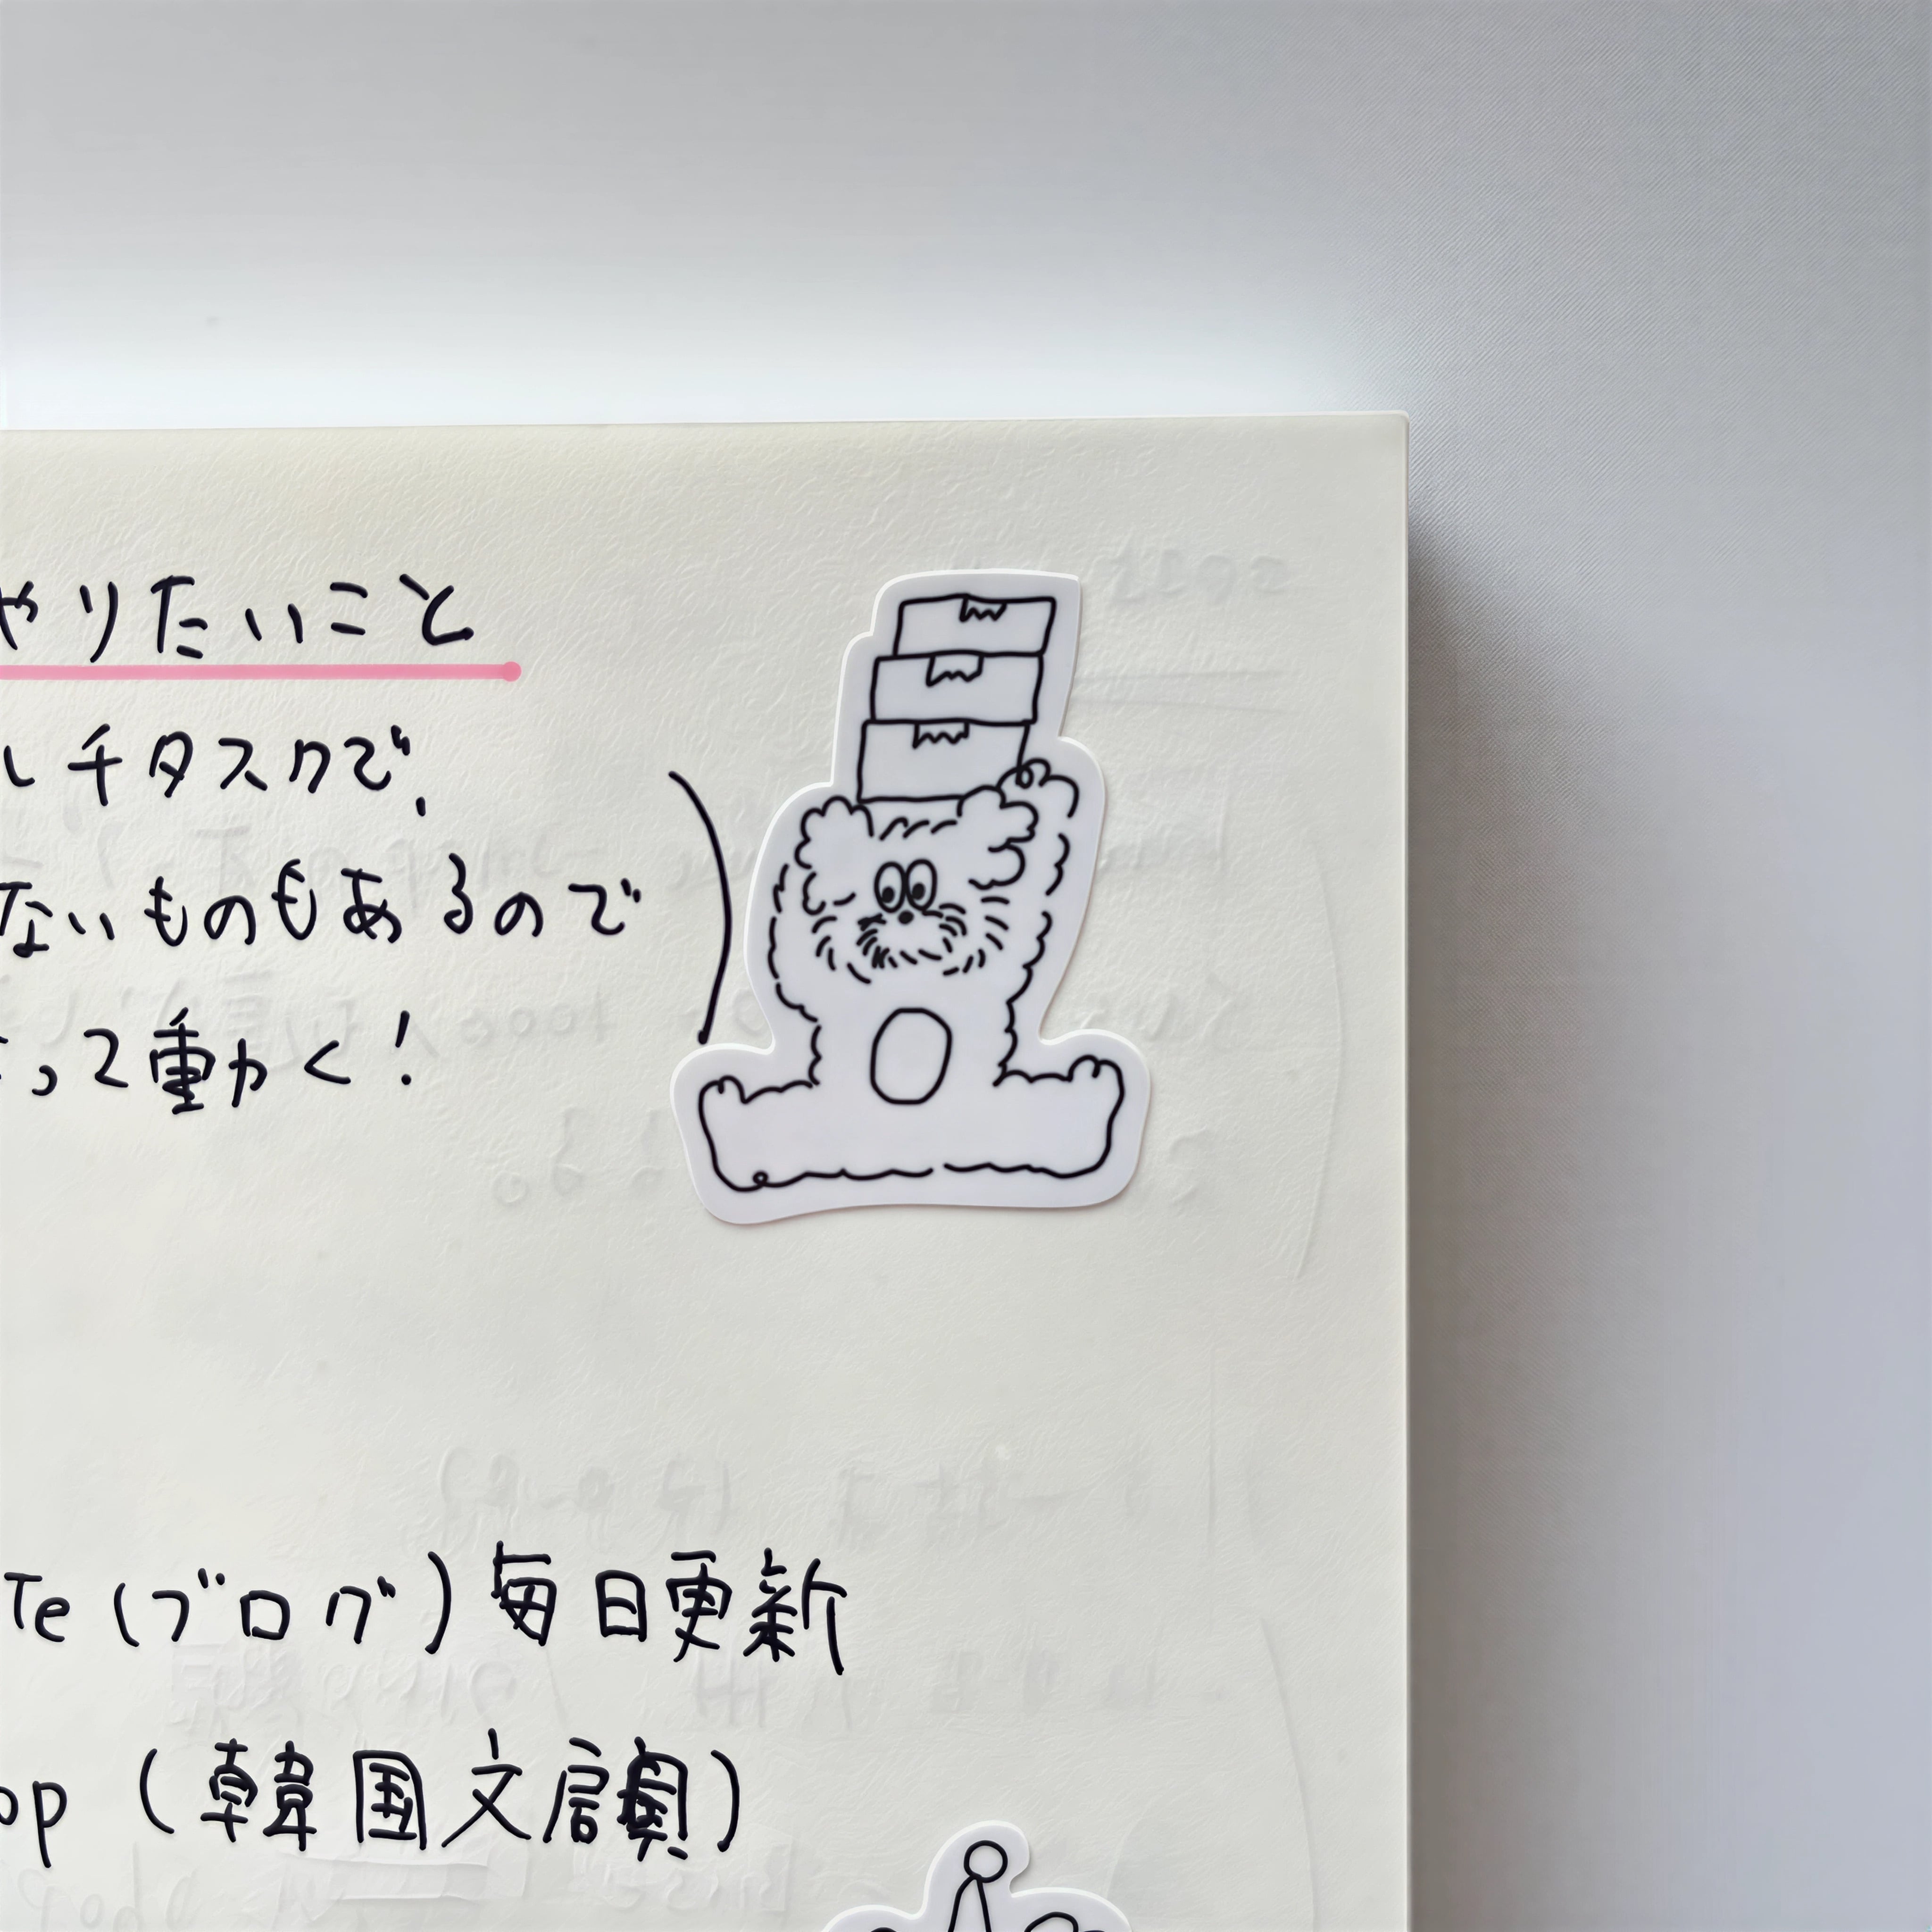 やりたいこと
ルチタスクで、
ないものもあるので
って動く！
Te (ブログ) 毎日更新
op (韓国文房具)